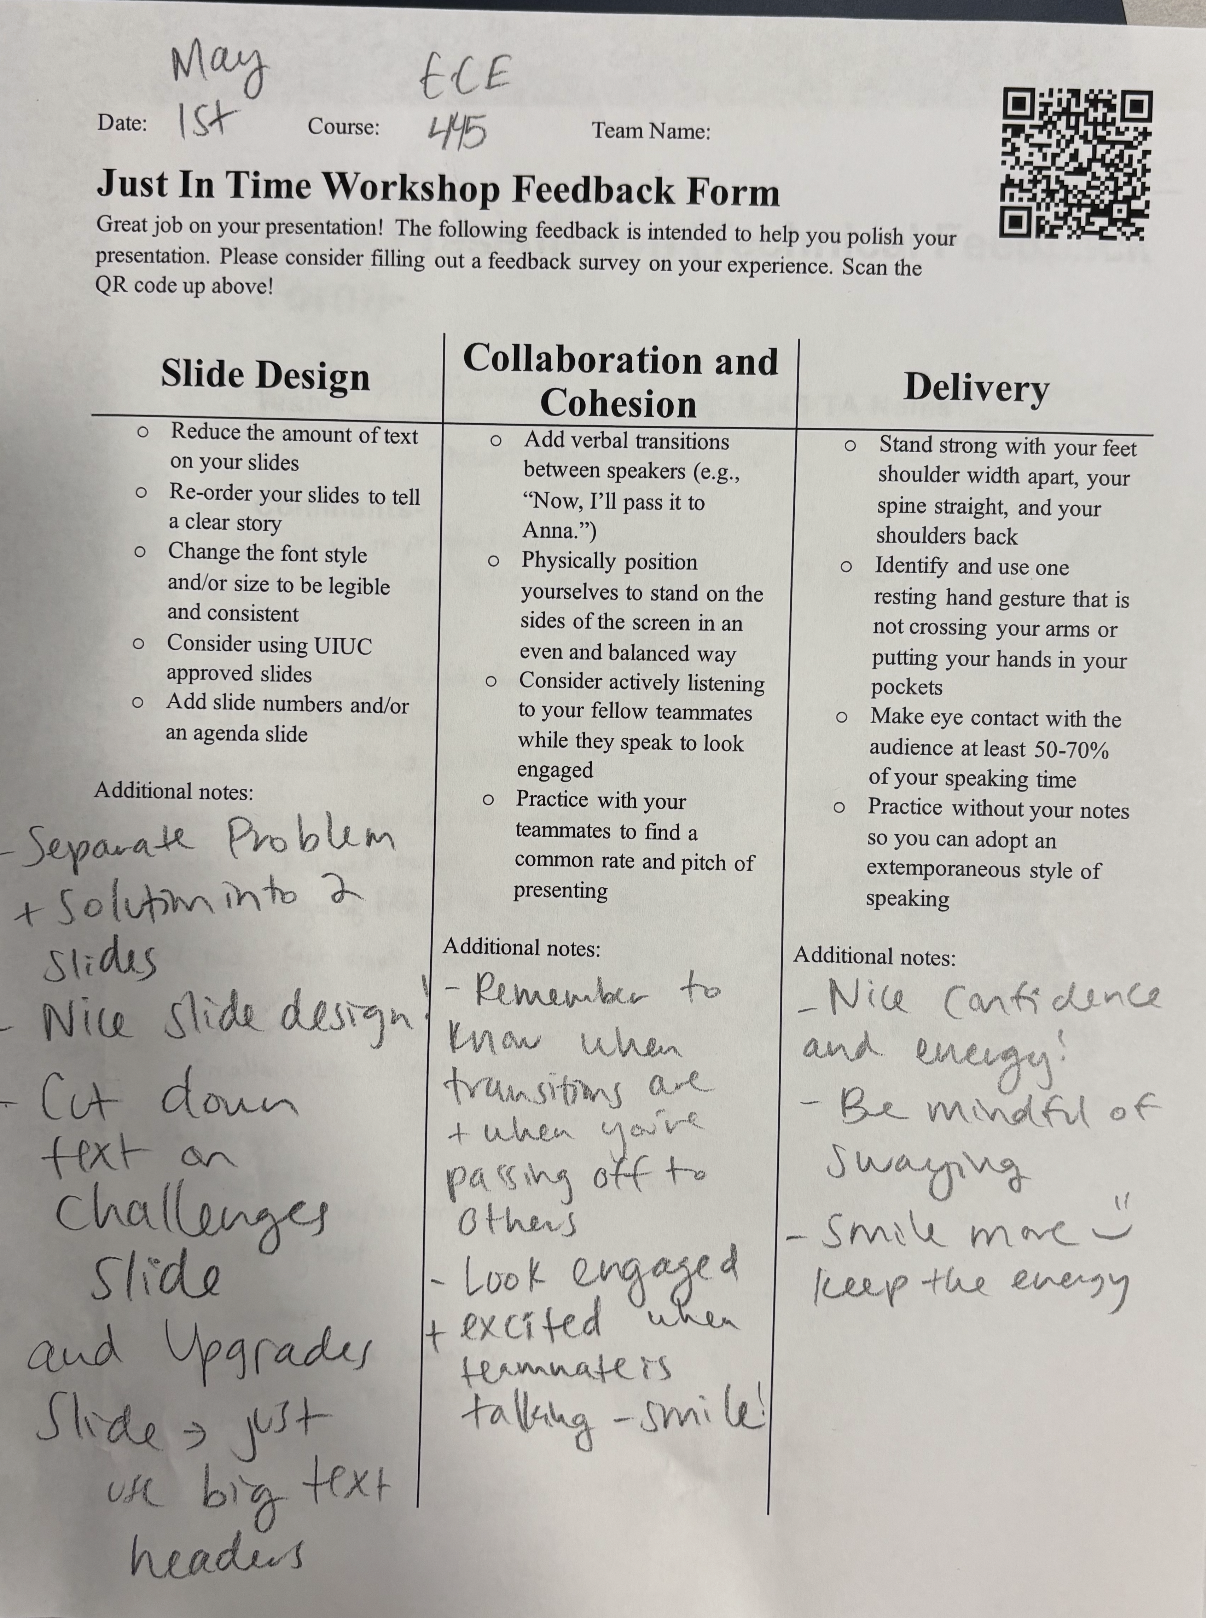 May
1st
ECE
445
Date:
Course:
Team Name:
Just In Time Workshop Feedback Form
Great job on your presentation! The following feedback is intended to help you polish your
presentation. Please consider filling out a feedback survey on your experience. Scan the
QR code up above!
Slide Design
○ Reduce the amount of text
on your slides
○ Re-order your slides to tell
a clear story
○ Change the font style
and/or size to be legible
and consistent
○ Consider using UIUC
approved slides
○ Add slide numbers and/or
an agenda slide
Additional notes:
- Separate Problem
+ Solution into 2
slides
- Nice slide design!
- Cut down
text on
challenges
slide
and Upgrades
Slide → just
use big text
headers
Collaboration and
Cohesion
○ Add verbal transitions
between speakers (e.g.,
“Now, I’ll pass it to
Anna.”)
○ Physically position
yourselves to stand on the
sides of the screen in an
even and balanced way
○ Consider actively listening
to your fellow teammates
while they speak to look
engaged
○ Practice with your
teammates to find a
common rate and pitch of
presenting
Additional notes:
- Remember to
know when
transitions are
+ when you're
passing off to
others
- Look engaged
+ excited when
teammate is
talking - smile!
Delivery
○ Stand strong with your feet
shoulder width apart, your
spine straight, and your
shoulders back
○ Identify and use one
resting hand gesture that is
not crossing your arms or
putting your hands in your
pockets
○ Make eye contact with the
audience at least 50-70%
of your speaking time
○ Practice without your notes
so you can adopt an
extemporaneous style of
speaking
Additional notes:
- Nice confidence
and energy!
- Be mindful of
swaying
- Smile more
keep the energy